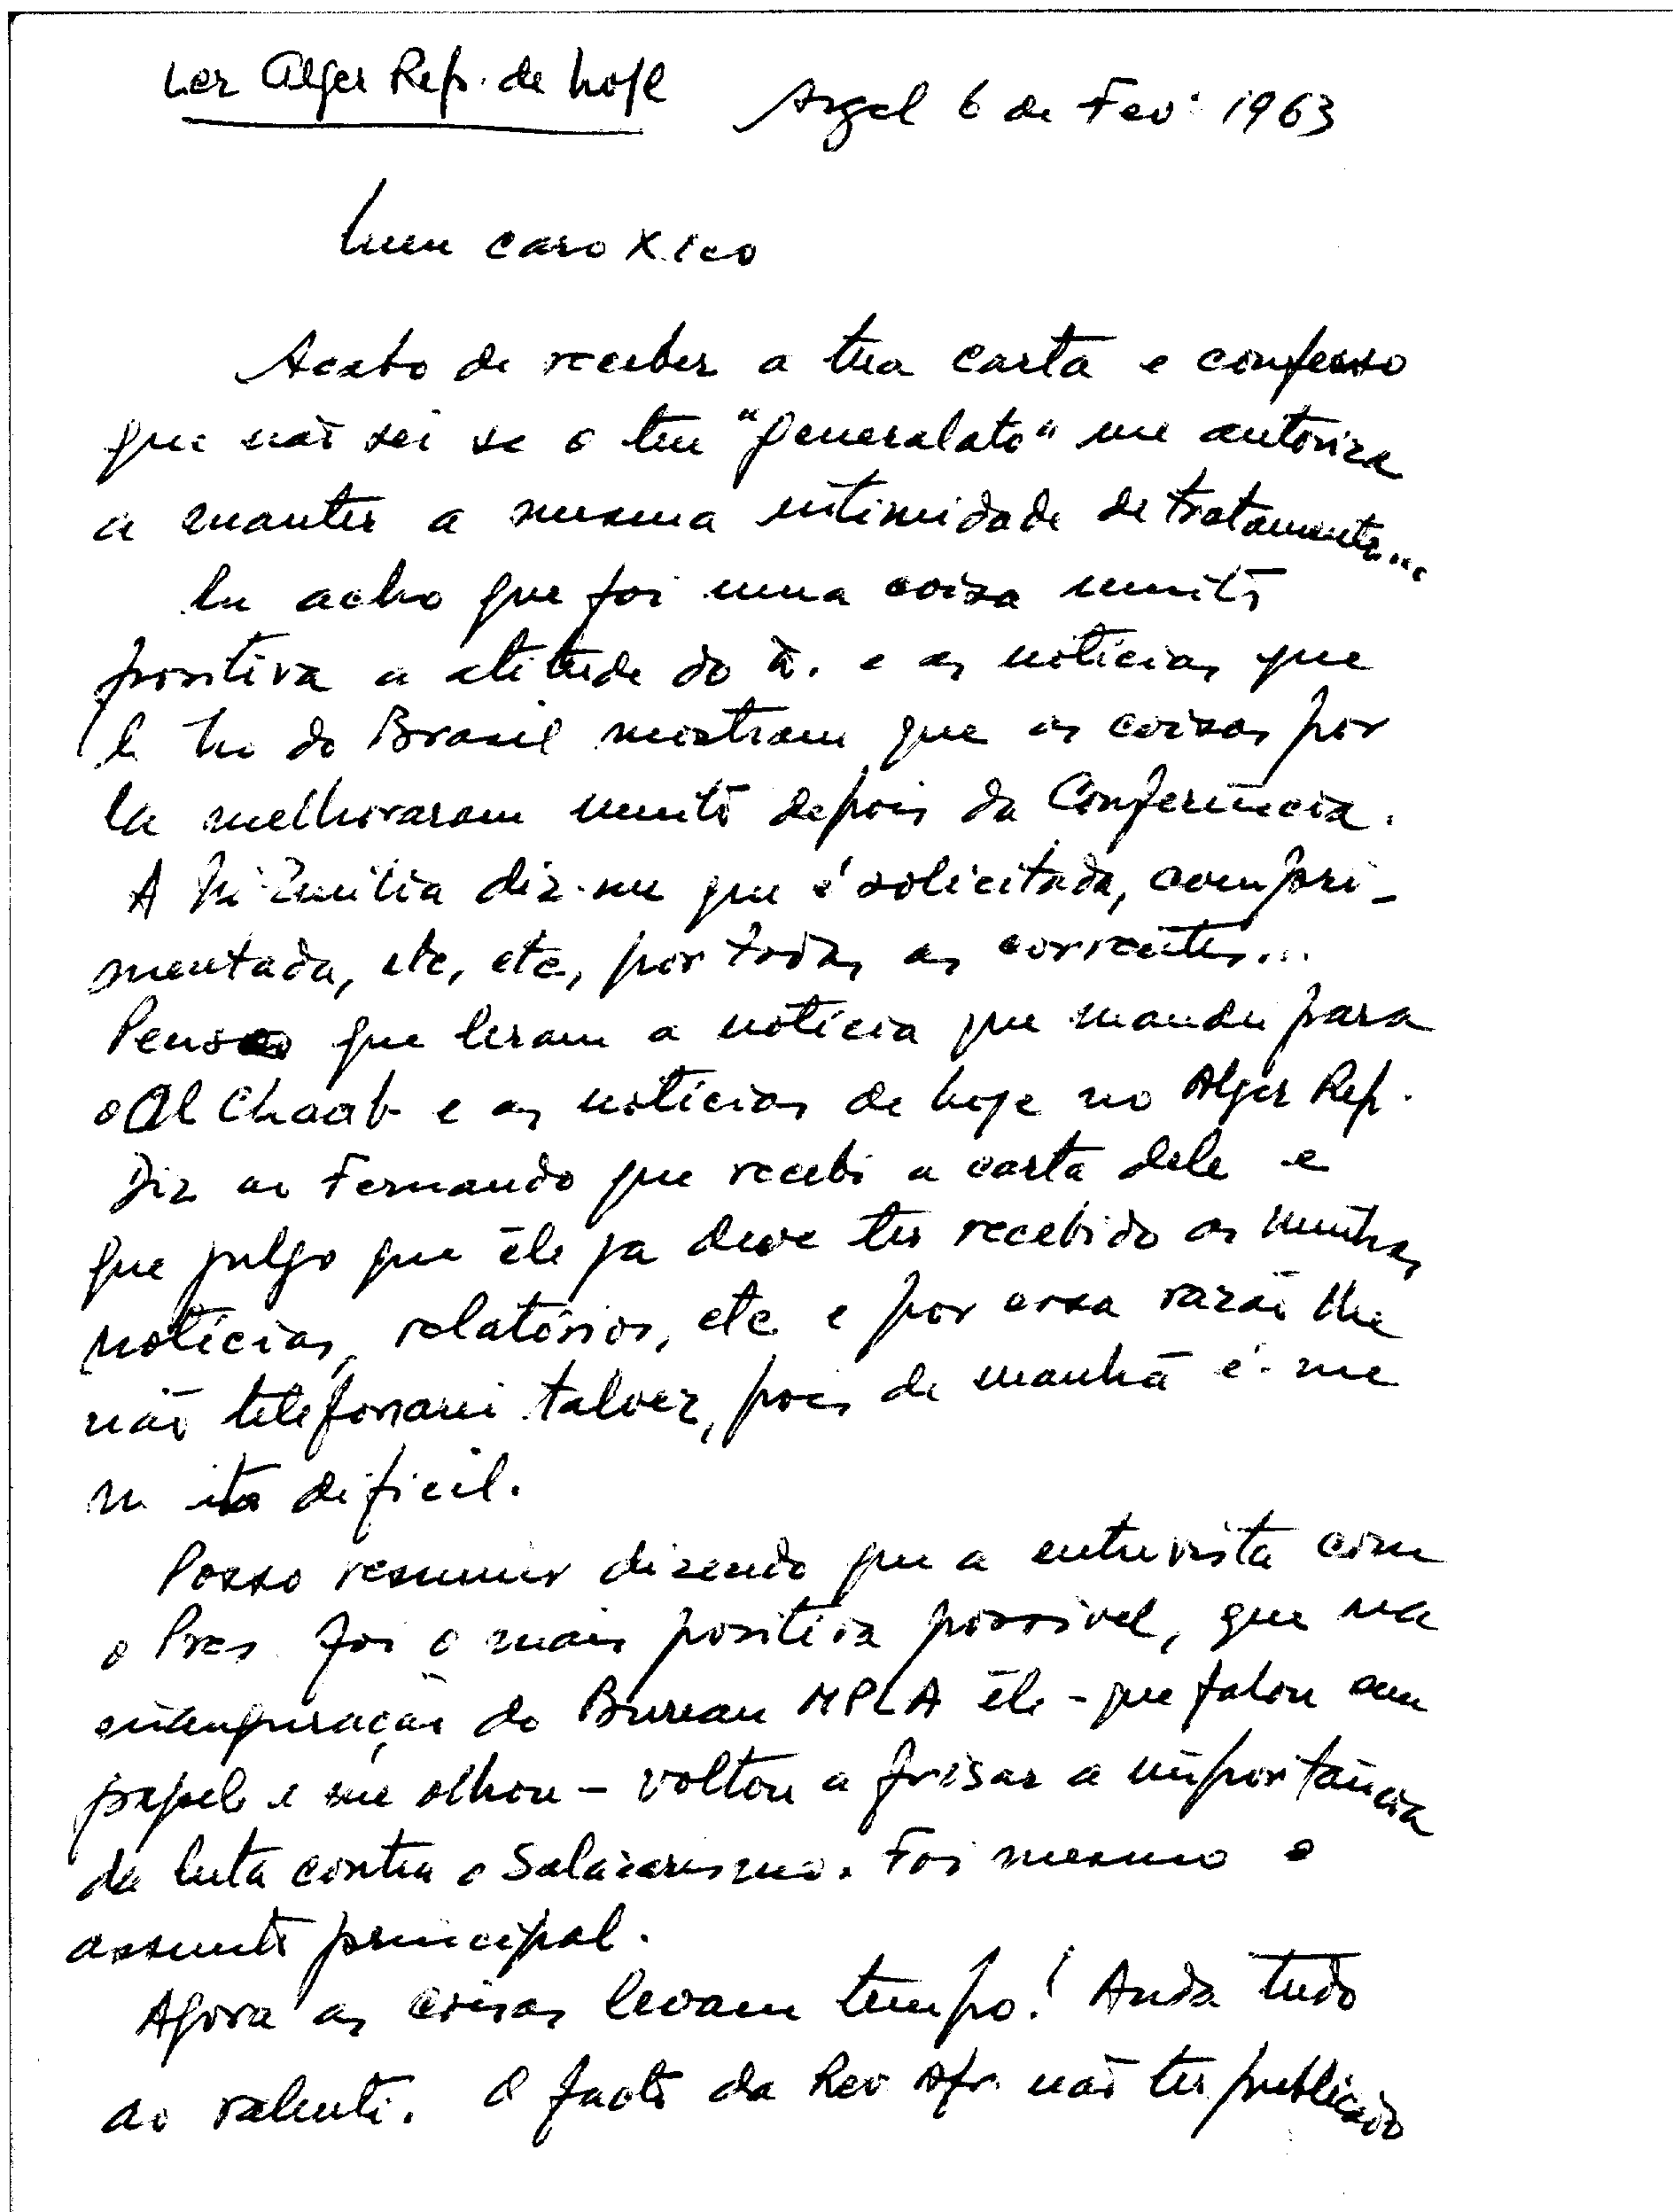 Ler Alger Rep. de hoje
Argel 6 de Fev: 1963
Meu caro Xico
Acabo de receber a tua carta e confesso
que não sei se o teu "generalato" me autoriza
a manter a mesma intimidade de tratamento...
Eu acho que foi uma coisa muito
positiva a atitude do A. e as notícias que
tenho do Brasil mostram que as coisas por
la melhoraram muito depois da Conferência.
A Mª Emília diz-me que é solicitada, compri-
mentada, etc, etc, por todas as correntes...
Penso que leram a notícia que mandei para
o Al Chaab e as notícias de hoje no Alger Rep.
Diz ao Fernando que recebi a carta dele e
que julgo que êle ja deve ter recebido as minhas
notícias, relatórios, etc e por essa razão lhe
não telefonarei talvez, pois de manhã é-me
muito dificil.
Posso resumir dizendo que a entrevista com
o Pres. foi o mais positiva possivel, que na
inauguração do Bureau MPLA êle - que falou sem
papel e me olhou - voltou a frisar a importância
da luta contra o Salazarismo. Foi mesmo o
assunto principal.
Agora as coisas levam tempo! Anda tudo
ao ralenti. O facto da Rev. Afr. não ter publicado